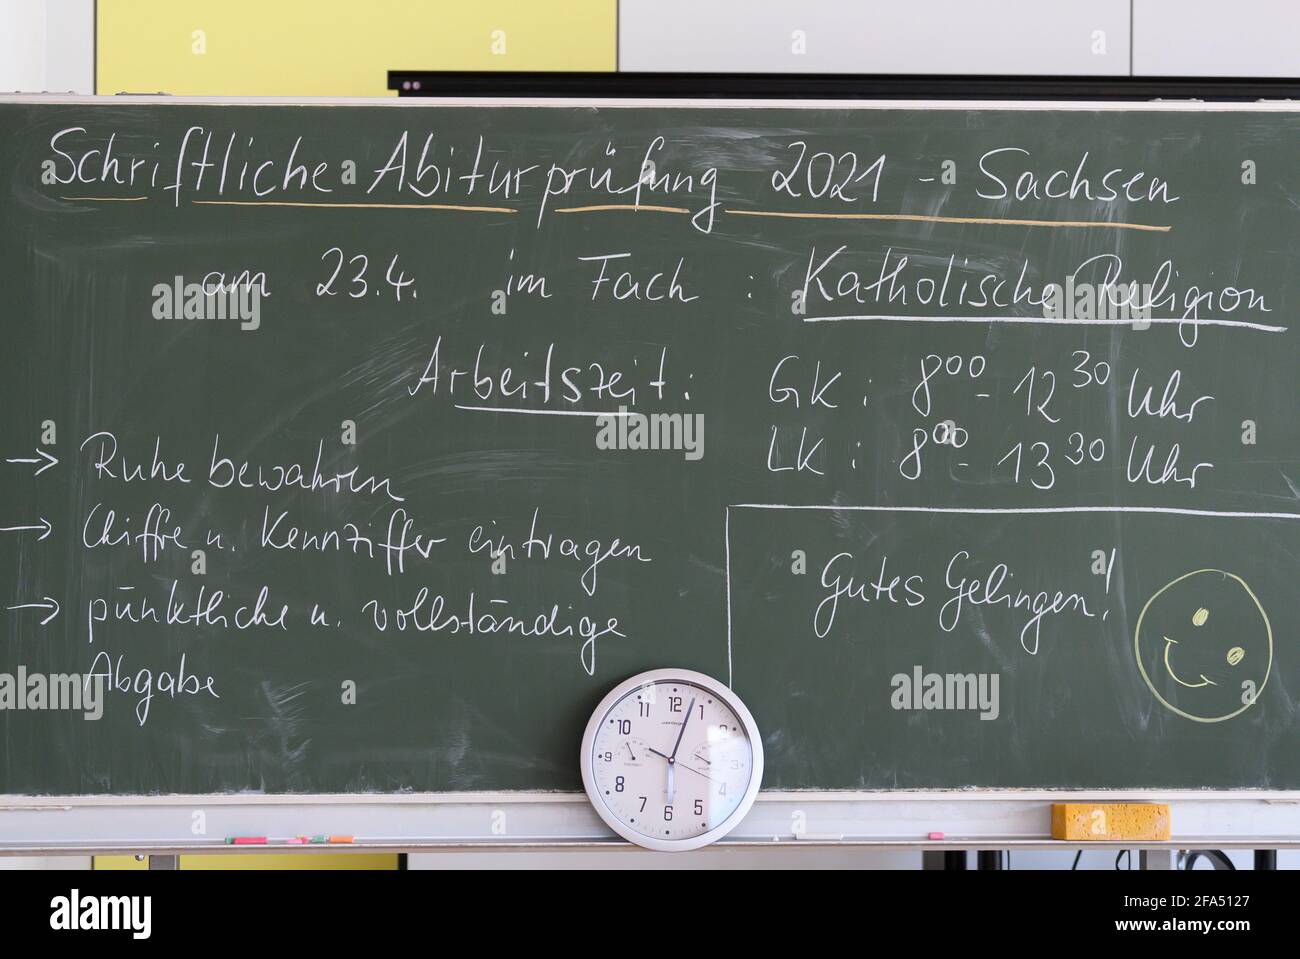 Schriftliche Abiturprüfung 2021 - Sachsen
am 23.4. im Fach : Katholische Religion
Arbeitszeit: GK : 8⁰⁰ - 12³⁰ Uhr
LK : 8⁰⁰ - 13³⁰ Uhr
→ Ruhe bewahren
→ Chiffre u. Kennziffer eintragen
→ pünktliche u. vollständige
Abgabe
Gutes Gelingen!
12
1
2
3
4
5
6
7
8
9
10
11
a alamy
alamy
Image ID: 2FA5127
www.alamy.com